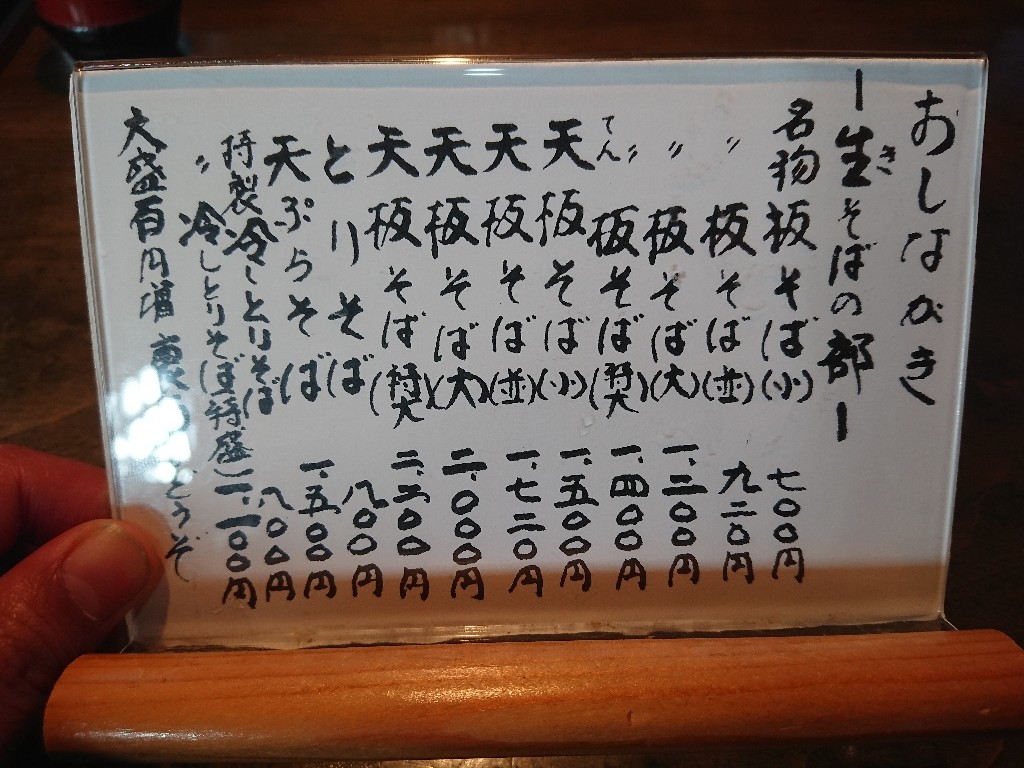 おしながき
ー生きそばの部ー
名物板そば(小) 七〇〇円
〃板そば(並) 九二〇円
〃板そば(大) 一、二〇〇円
〃板そば(特大) 一、四〇〇円
てん
天板そば(小) 一、五〇〇円
天板そば(並) 一、七二〇円
天板そば(大) 二、〇〇〇円
天板そば(特大) 二、二〇〇円
とりそば 八〇〇円
天ぷらそば 一、五〇〇円
特製冷しとりそば 八〇〇円
〃冷しとりそば(特盛) 一、一〇〇円
大盛百円増 裏 どうぞ